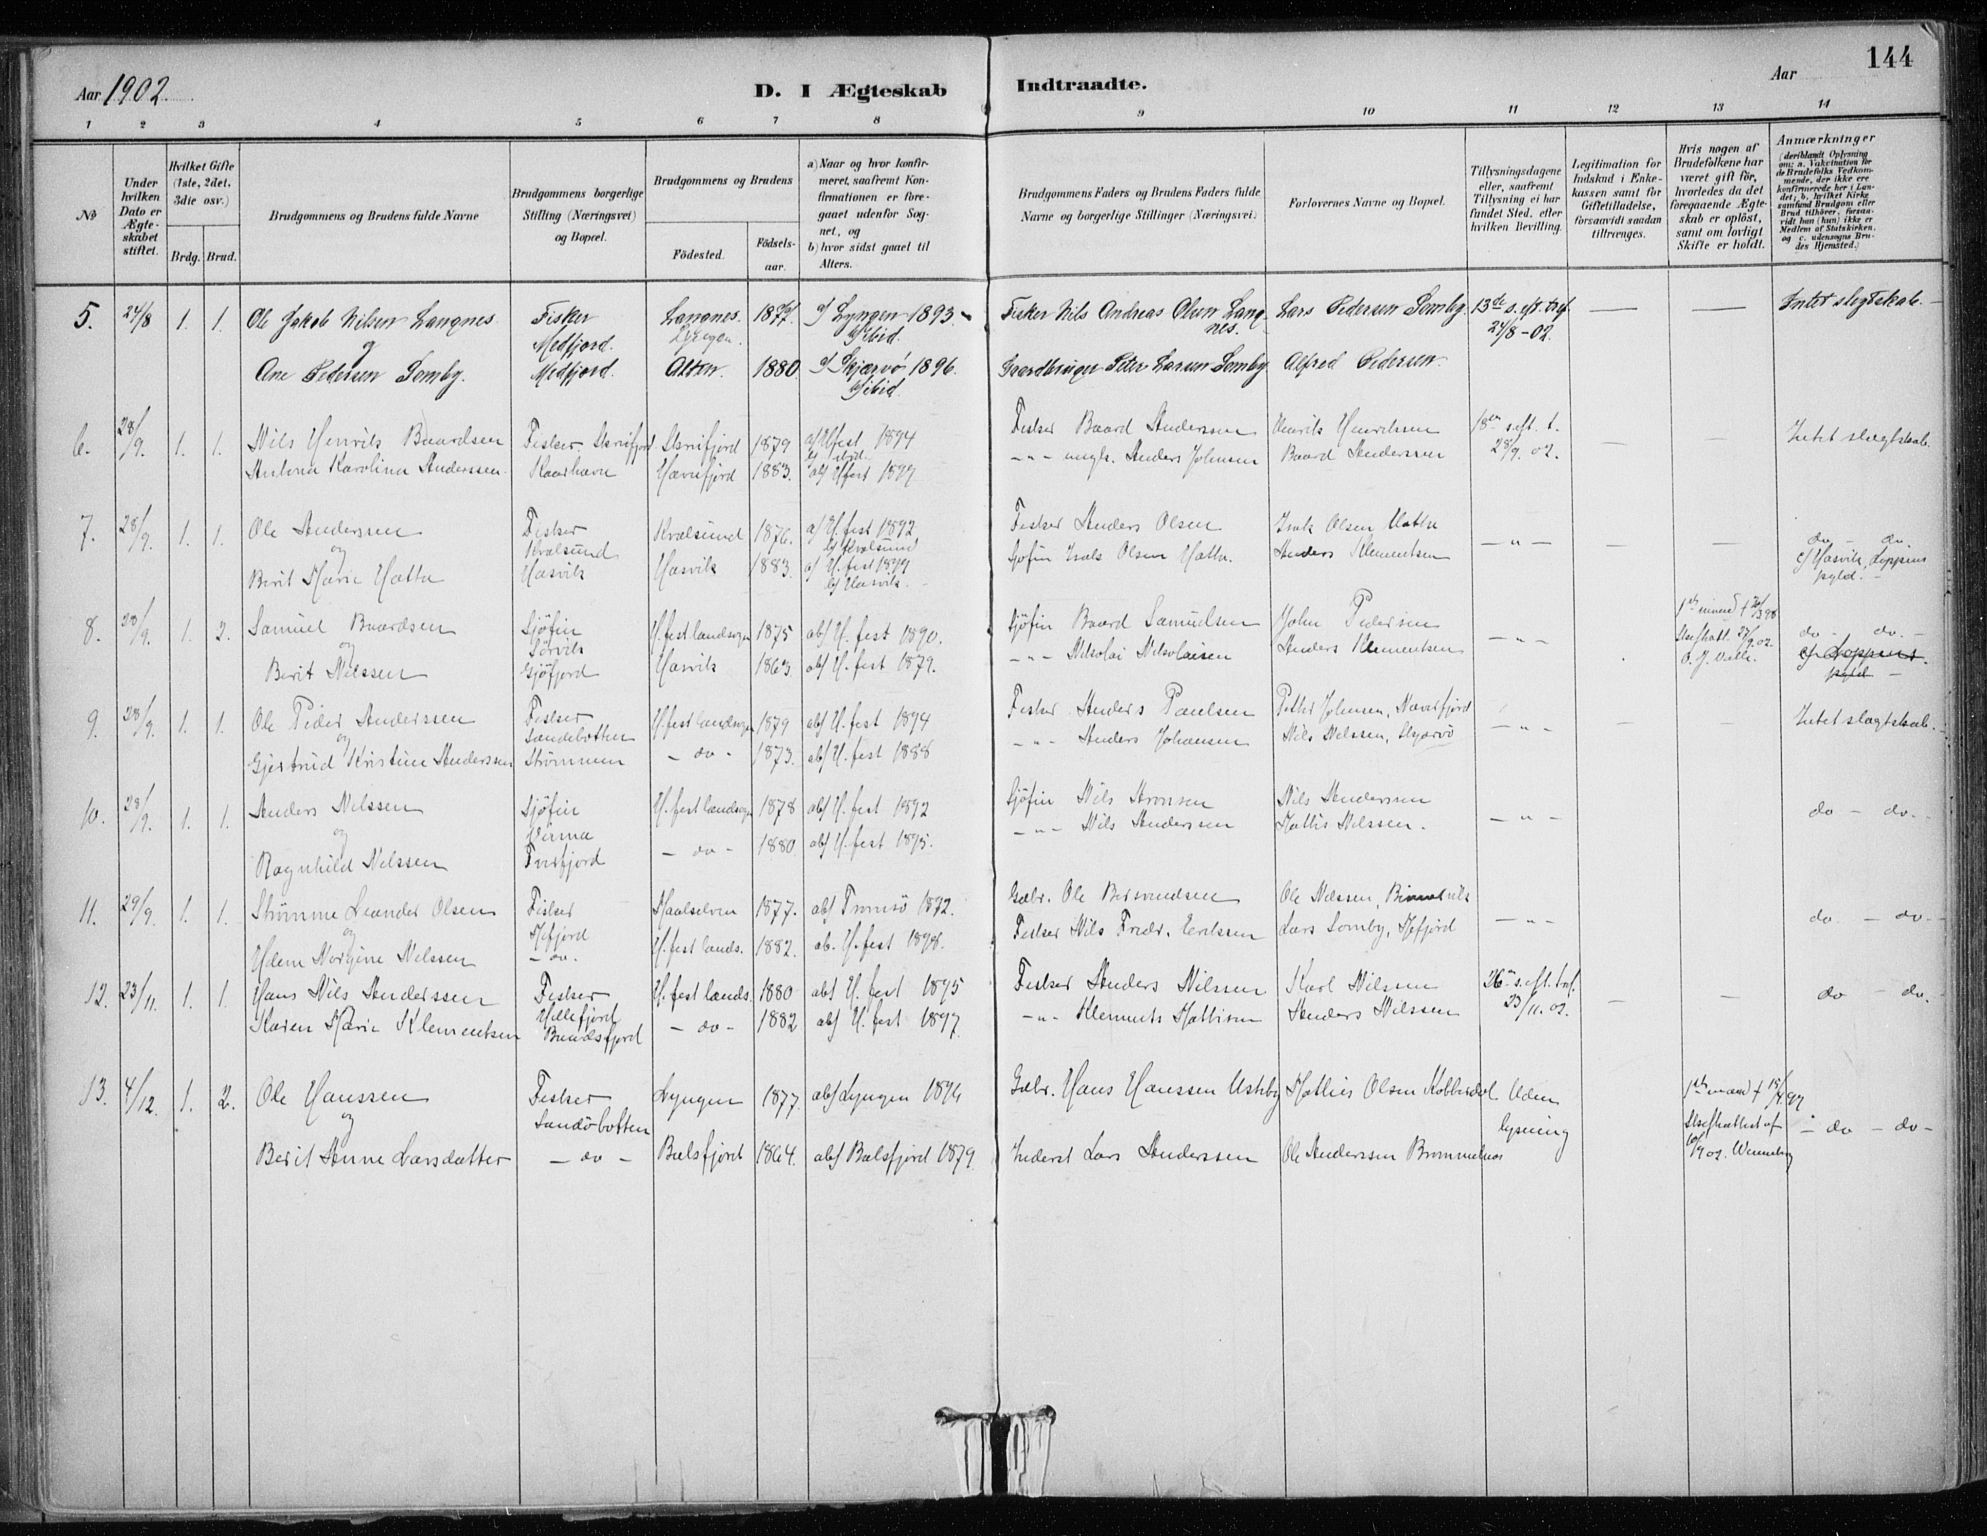 144
Aar 1902.
D. I Ægteskab Indtraadte.
Aar
1 2 3 4 5 6 7 8 9 10 11 12 13 14
No
Under hvilken Dato er Ægteskabet stiftet.
Hvilket Gifte (1ste, 2det, 3die osv.)
Brdg. Brud.
Brudgommens og Brudens fulde Navne
Brudgommens borgerlige Stilling (Næringsvei) og Bopæl.
Brudgommens og Brudens
Fødested. Fødselsaar.
a) Naar og hvor konfirmeret, saafremt Konfirmationen er foregaaet udenfor Sognet, og
b) hvor sidst gaaet til Alters.
Brudgommens Faders og Brudens Faders fulde Navne og borgerlige Stillinger (Næringsvei).
Forlovernes Navne og Bopæl.
Tillysningsdagene eller, saafremt Tillysning ei har fundet Sted, efter hvilken Bevilling.
Legitimation for Indskud i Enkekassen samt for Giftetilladelse, forsaavidt saadan tiltrænges.
Hvis nogen af Brudefolkene har været gift før, hvorledes da det foregaaende Ægteskab er opløst, samt om lovligt Skifte er holdt.
Anmærkninger
(deriblandt Oplysning om: a. Vakcination for de Brudefolks Vedkommende, der ikke ere konfirmerede her i Landet; b. hvilket Kirkesamfund Brudgom eller Brud tilhører, forsavidt han (hun) ikke er Medlem af Statskirken, og c. udensogns Brudes Hjemsted.)
5. 24/8 1. 1. Ole Jakob Nilsen Langnes Fisker Langnes. 1877 a) Lyngen 1893 Fisker Nils Andreas Olsen Langnes. Lars Pedersen Somby. 13de s. eft. tref. — — Intet slegtskab.
og Medfjord. Lyngen. b) ibid. 24/8-02.
Ane Pedersen Somby. Medfjord. Alten. 1880 a) Skjærvø 1896. Gaardbruger Peter Larsen Somby Alfred Pedersen
b) ibid.
6. 28/9. 1. 1. Nils Henrik Baardsen Fisker, Skreifjord Skreifjord 1879 a) H.fest 1894 Fisker Baard Anderssen Henrik Henriksen 18de s. eft. t. — — Intet slægtskab.
b) ibid.
Antona Karolina Anderssen Kaarhavn Hævefjord 1883. ab) H.fest 1897 -"- ungk. Anders Johnsen Baard Anderssen 28/9. 02.
7. 28/9. 1. 1. Ole Anderssen Fisker Kvalsund 1876. a) H.fest 1892 Fisker Anders Olsen Isak Olsen Hætta —"— — — do - do.
og Kvalsund b) Kvalsund
Berit Marie Hætta Hasvik Hasvik 1883. a) H.fest 1899 Sjøfin Isak Olsen Hætta. Anders Klementsen c) Hasvik, Loppens
b) Hasvik. pgld.
8. 28/9. 1. 2. Samuel Baardsen Sjøfin H.fest landsogn 1875 ab) H.fest 1890. Sjøfin Baard Samuelsen John Pedersen —"— 1ste mand † 20/3 98 do - do.
og Sørvik Skifteatt. 27/9.02.
Berit Nilssen Gjøfjord Hasvik 1863 ab) H.fest 1879. -"- Nikolai Nikolaisen Anders Klementsen c) Loppens pgld
9. 28/9. 1. 1. Ole Peder Anderssen Fisker H.fest landsogn 1879 ab) H.fest 1894 Fisker Anders Paulsen Petter Johnsen, Næverfjord —"— — — Intet slægtskab.
og Sandøbotten
Gjertrud Kristine Anderssen Strømmen — do - 1873. ab) H.fest 1888 -"- Anders Johansen Nils Nilssen, Skjærvø
10. 28/9. 1. 1. Anders Nilssen Sjøfin H.fest landsogn 1878 ab) H.fest 1892 Sjøfin Nils Aronsen Nils Anderssen —"— do - do.
og
Ragnhild Nilssen Tverfjord - do - 1880 ab) H.fest 1895. -"- Nils Anderssen Mattis Nilssen.
11. 29/9. 1. 1. Strømme Leander Olsen Fisker Maalselven 1877. ab) Tromsø 1892. Gaabr. Ole Bersvendsen Ole Nilssen, —"— do - do
og Mefjord
Nergine Nilssen - do. H.fest lands. 1882. ab. H.fest 1898. Fisker Nils Fredr. Erikssen Lars Somby, Mefjord
12. 23/11. 1. 1. Hans Nils Anderssen Fisker H.fest lands. 1880 ab) H.fest 1895 Fisker Anders Nilssen Karl Nilssen 26de s. eft. tref. — — do - do.
Karen Marie Klementsen Hellefjord - do - 1882 ab) H.fest 1897 -"- Klemet Mattisen Anders Nilssen 23/11.02.
13. 4/12. 1. 2. Ole Hanssen Fisker Lyngen 1877. ab) Lyngen 1894 Gaabr. Hans Hanssen Mathies Olsen Kobberdal Uden 1ste mand † 18/4 97
og Sandøbotten lysning Skifteattest af — do - do -
Berit Anne Larsdatter — do — Balsfjord 1864. ab) Balsfjord 1879. Inderst Lars Anderssen Ole Anderssen